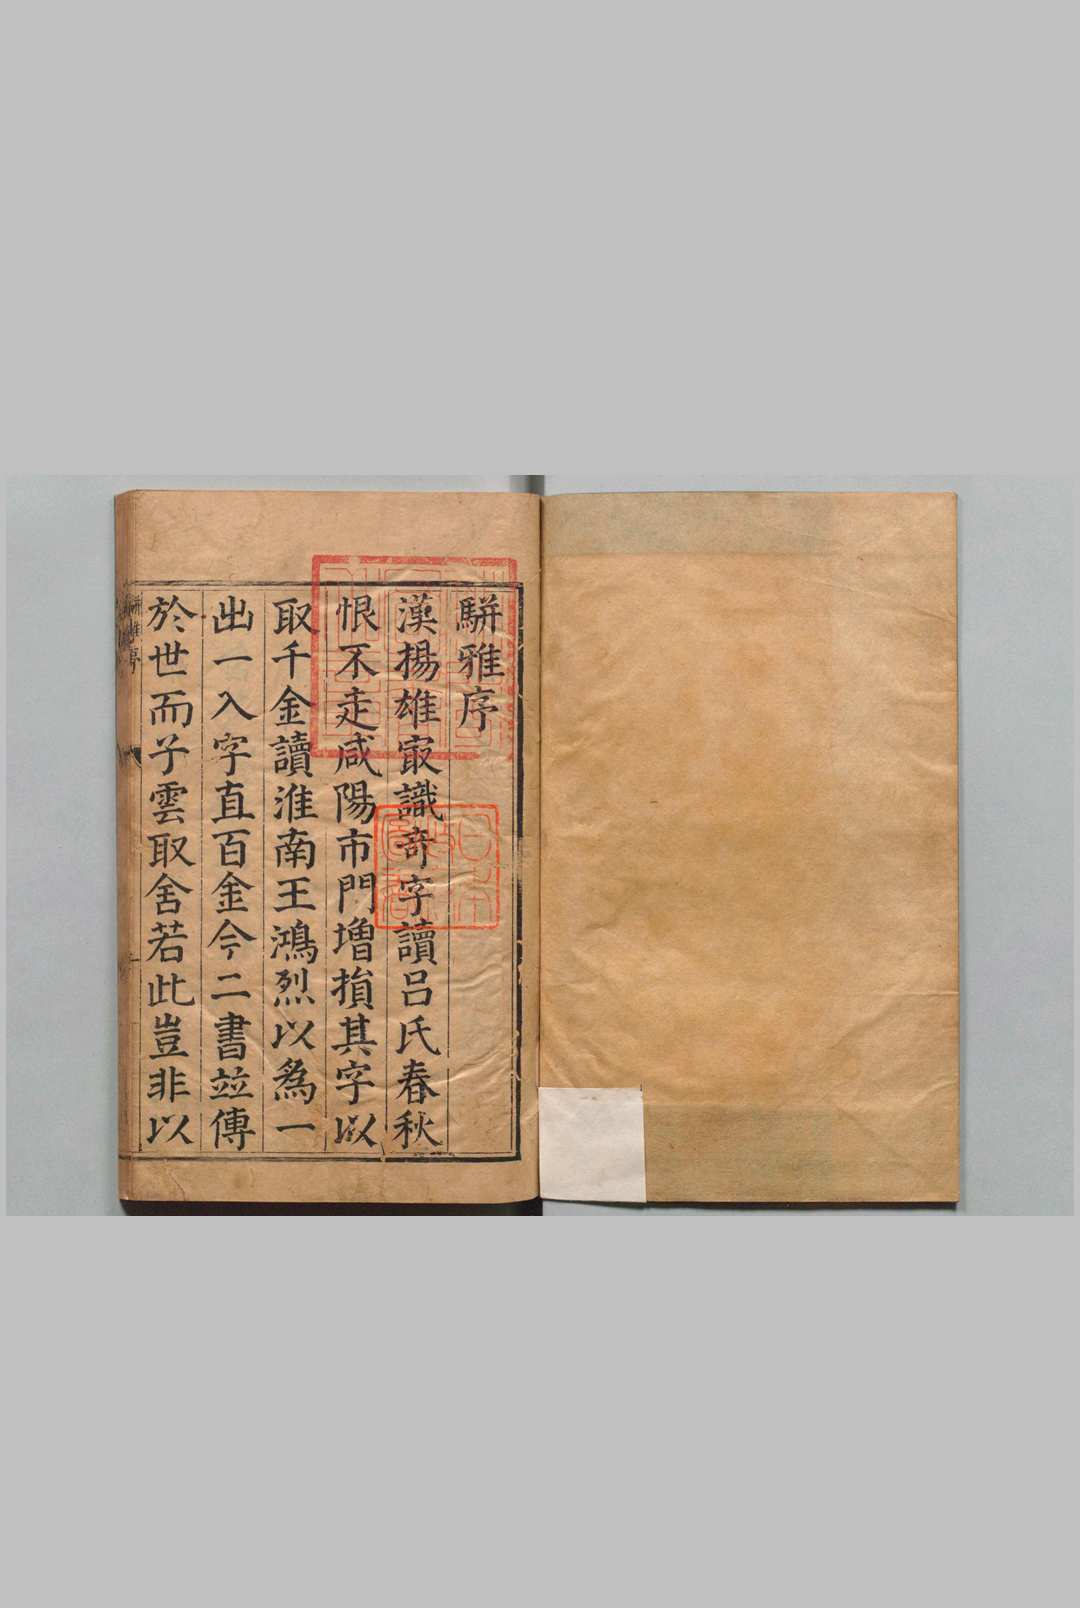 駢雅序
漢揚雄㝡識奇字讀呂氏春秋
恨不走咸陽市門增損其字以
取千金讀淮南王鴻烈以爲一
出一入字直百金今二書竝傳
於世而子雲取舍若此豈非以